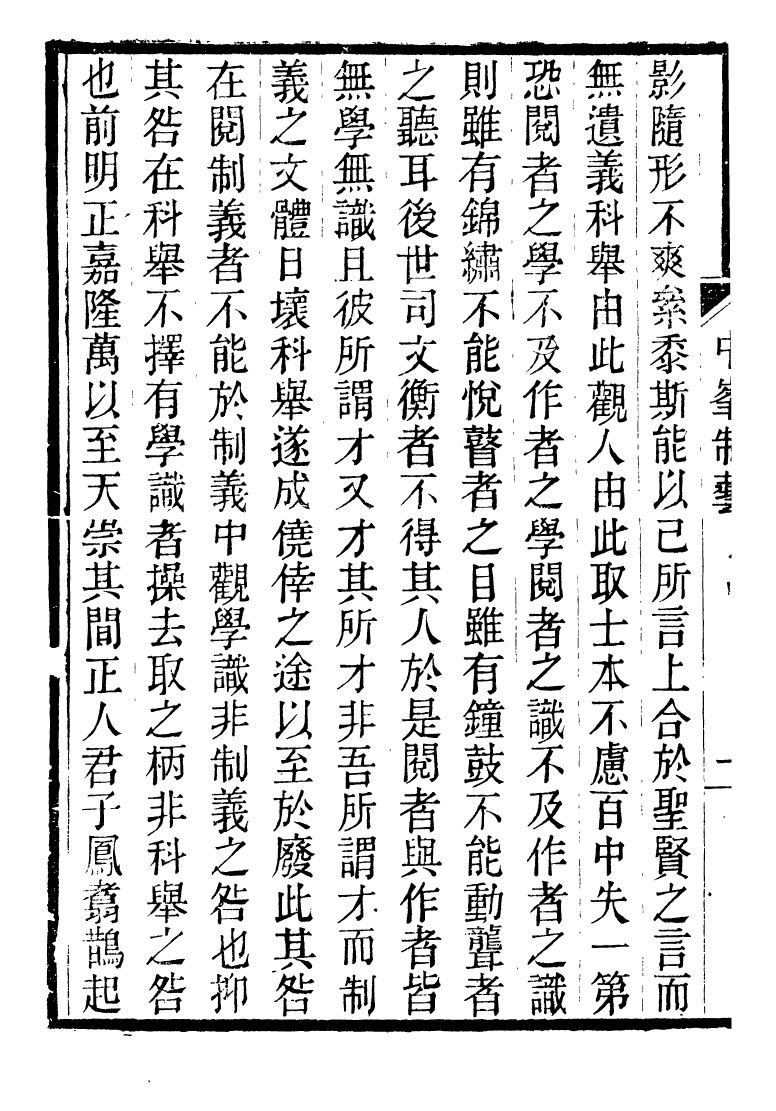 影隨形不爽絫黍斯能以己所言上合於聖賢之言而
無遺義科舉由此觀人由此取士本不慮百中失一第
恐閱者之學不及作者之學閱者之識不及作者之識
則雖有錦繡不能悅瞽者之目雖有鐘鼓不能動聾者
之聽耳後世司文衡者不得其人於是閱者與作者皆
無學無識且彼所謂才又才其所才非吾所謂才而制
義之文體日壞科舉遂成僥倖之途以至於廢此其咎
在閱制義者不能於制義中觀學識非制義之咎也抑
其咎在科舉不擇有學識者操去取之柄非科舉之咎
也前明正嘉隆萬以至天崇其間正人君子鳳翥鵲起
中峯制藝
二